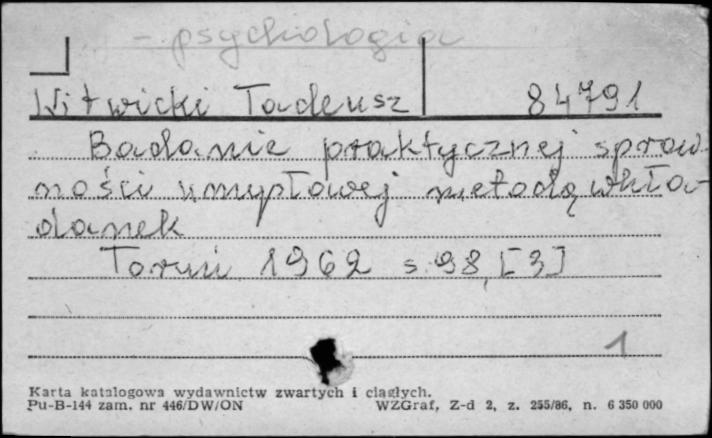 - psychologia
Witwicki Tadeusz 84791
Badanie praktycznej spraw-
ności umysłowej metodą wkła-
danek
Toruń 1962 s. 98, [3]
1
Karta katalogowa wydawnictw zwartych i ciągłych.
Pu-B-144 zam. nr 446/DW/ON WZGraf, Z-d 2, z. 255/86, n. 6 350 000